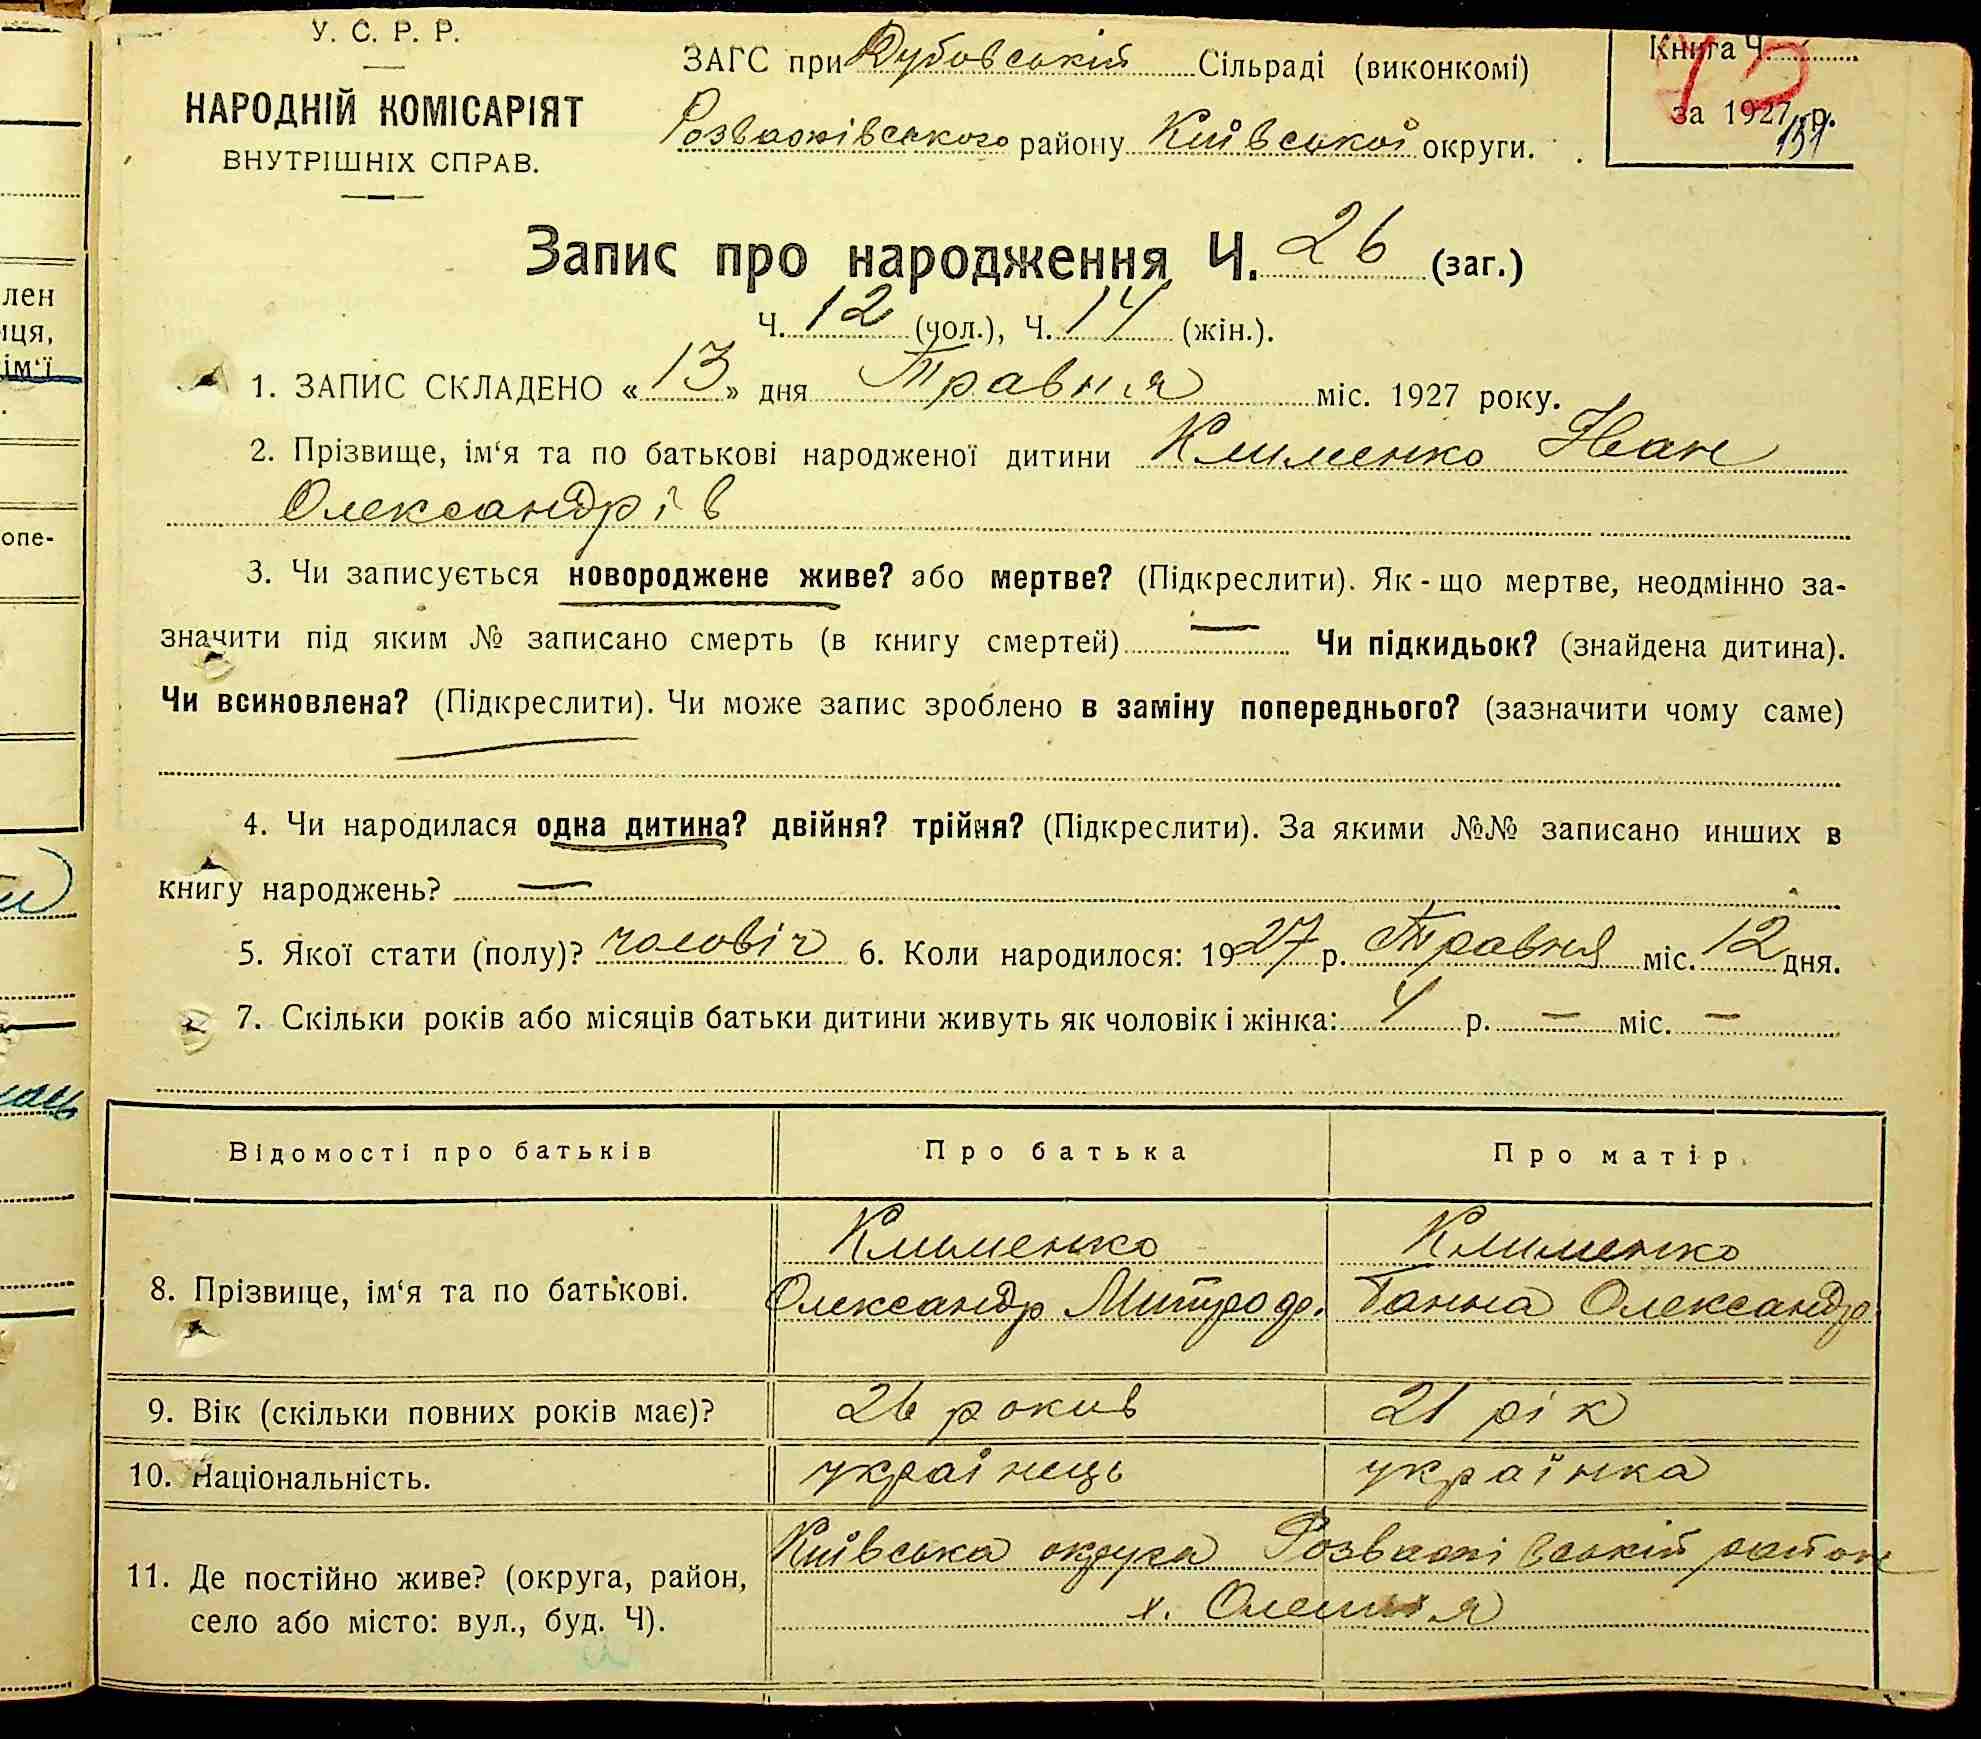 У. С. Р. Р.
НАРОДНІЙ КОМІСАРІЯТ
ВНУТРІШНІХ СПРАВ.
ЗАГС при Дубовській Сільраді (виконкомі)
Розважівського району Київської округи.
Книга Ч.
за 1927 р.
151
Запис про народження Ч. 26 (заг.)
Ч. 12 (чол.), Ч. 14 (жін.).
1. ЗАПИС СКЛАДЕНО « 13 » дня Травня міс. 1927 року.
2. Прізвище, ім‘я та по батькові народженої дитини Клименко Іван
Олександрів
3. Чи записується новороджене живе? або мертве? (Підкреслити). Як - що мертве, неодмінно за-
значити під яким № записано смерть (в книгу смертей) — Чи підкидьок? (знайдена дитина).
Чи всиновлена? (Підкреслити). Чи може запис зроблено в заміну попереднього? (зазначити чому саме)
4. Чи народилася одна дитина? двійня? трійня? (Підкреслити). За якими №№ записано инших в
книгу народжень? —
5. Якої стати (полу)? чоловіч 6. Коли народилося: 1927 р. Травня міс. 12 дня.
7. Скільки років або місяців батьки дитини живуть як чоловік і жінка: 4 р. — міс. —
Відомості про батьків Про батька Про матір
Клименко Клименко
8. Прізвище, ім‘я та по батькові. Олександр Митроф. Ганна Олександр
9. Вік (скільки повних років має)? 26 рокив 21 рік
10. Національність. українець українка
11. Де постійно живе? (округа, район, Київська округа Розважівській район
село або місто: вул., буд. Ч). х.
лен
иця,
ім‘ї
опе-